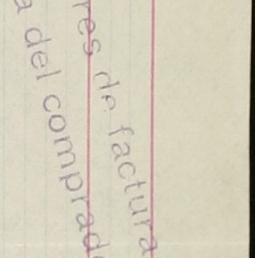 res de factura
a del comprad